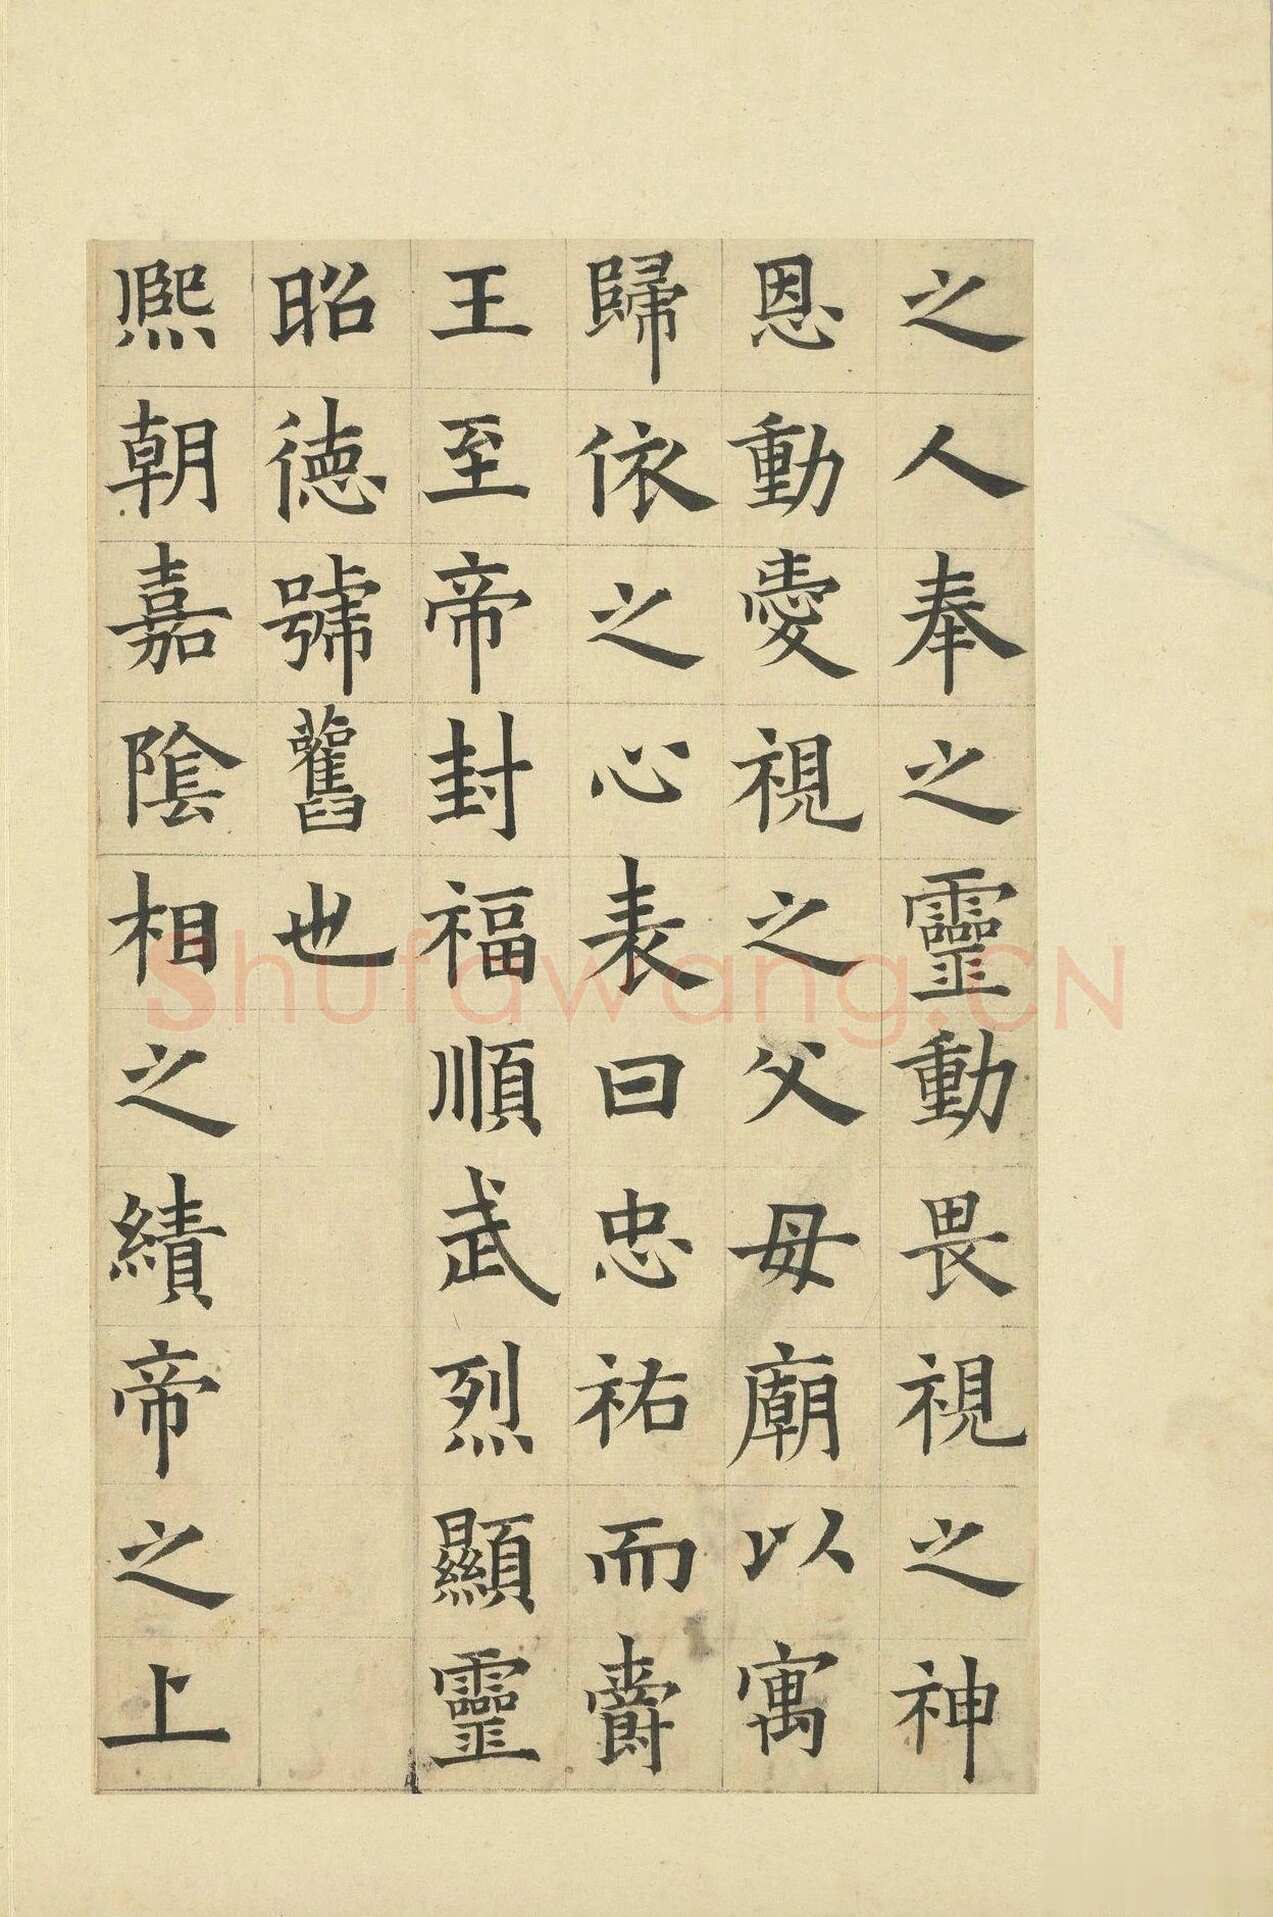 之人奉之靈動畏視之神
恩動愛視之父母廟以寓
歸依之心表曰忠祐而爵
王至帝封福順武烈顯靈
昭德號舊也
熙朝嘉陰相之績帝之上
Shufawang.CN